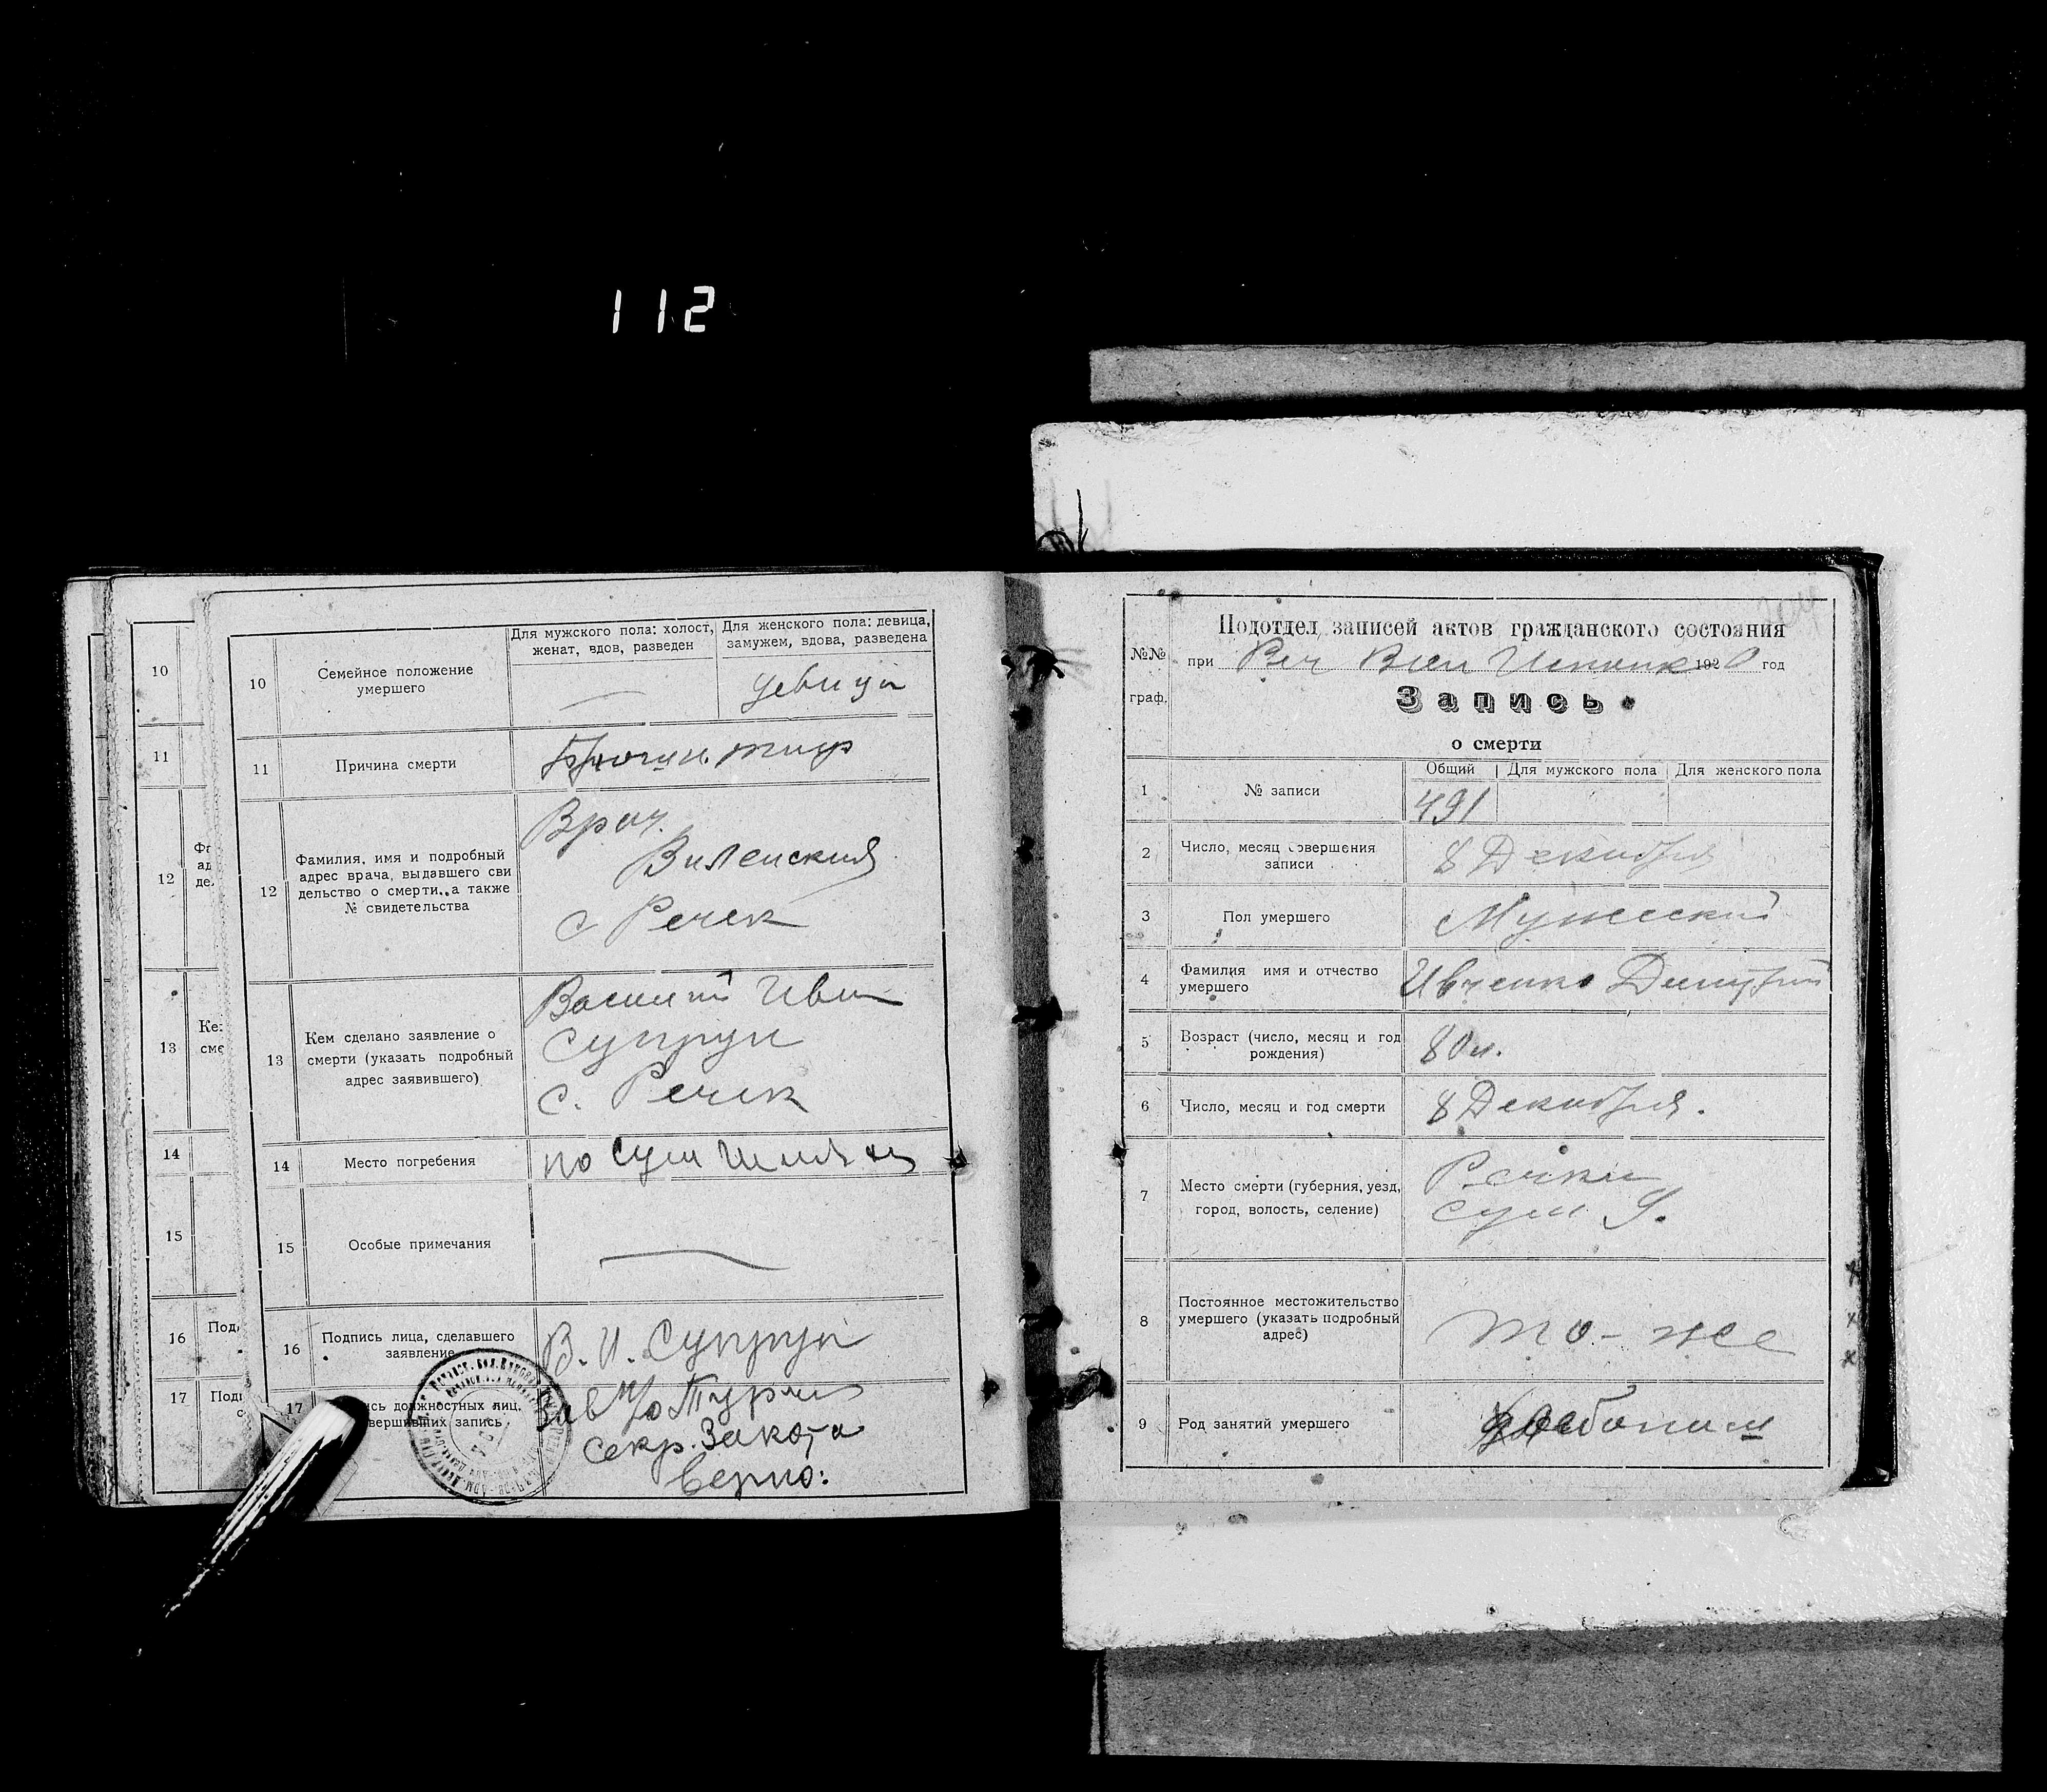 112
10
11
12
13
14
15
16
17
10
Семейное положение
умершего
Для мужского пола: холост,
женат, вдов, разведен
Для женского пола: девица,
замужем, вдова, разведена
девица
11
Причина смерти
Брюшн. тиф
12
Фамилия, имя и подробный
адрес врача, выдавшего сви
дельство о смерти, а также
№ свидетельства
Врач.
Виленский
с Речек
13
Кем сделано заявление о
смерти (указать подробный
адрес заявившего)
Василий Иван
Супрун
с. Речек
14
Место погребения
15
Особые примечания
16
Подпись лица, сделавшего
заявление
В. И. Супрун
17
должностных лиц,
запись
Зав
Секр.
Верно:
Подотдел записей актов гражданского состояния
№№
граф.
при Реч Вол Исполк 1920 год
Запись
о смерти
1
№ записи
Общий
Для мужского пола
Для женского пола
491
2
Число, месяц совершения
записи
8 Декабря
3
Пол умершего
Мужеский
4
Фамилия имя и отчество
умершего
Ивченко Димитрий
5
Возраст (число, месяц и год
рождения)
80 л.
6
Число, месяц и год смерти
8 Декабря.
7
Место смерти (губерния, уезд,
город, волость, селение)
Речки
Сум У.
8
Постоянное местожительство
умершего (указать подробный
адрес)
то-же
9
Род занятий умершего